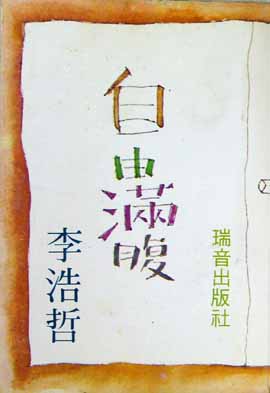 自由滿腹
瑞音出版社
李浩哲